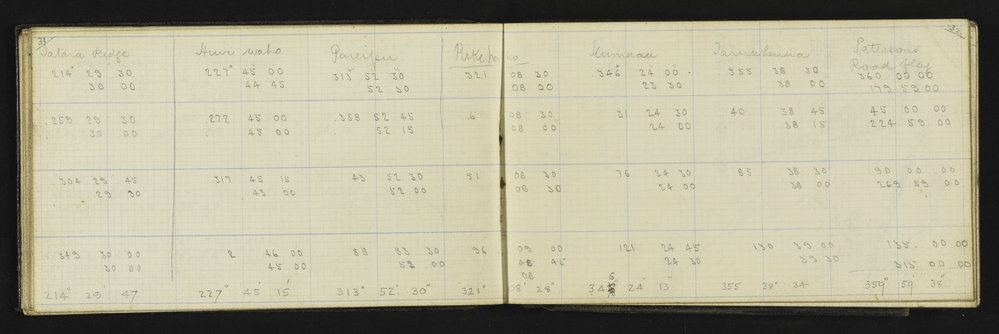 38
Ridge
214° 29 30 227° 45 00 313° 52 30 321 08 30 346 24 00 355 38 30 360 00 00
30 00 44 45 52 30 08 00 23 30 38 00 179 59 00
259 29 30 272 45 00 358 52 45 6 08 30 31 24 30 40 38 45 45 00 00
30 00 45 00 52 15 08 00 24 00 38 15 224 59 00
304 29 45 317 45 15 43 52 30 51 08 30 76 24 30 85 38 30 90 00 00
29 30 45 00 52 00 08 30 24 00 38 00 269 59 00
349 30 00 2 46 00 88 53 30 96 09 00 121 24 45 130 39 00 135 00 00
30 00 45 00 52 00 08 45 24 30 39 30 315 00 00
08
214° 29' 47 227° 45' 15 313° 52' 30" 321° 08' 28" 346 24' 13" 355 38" 34 359° 59' 38"